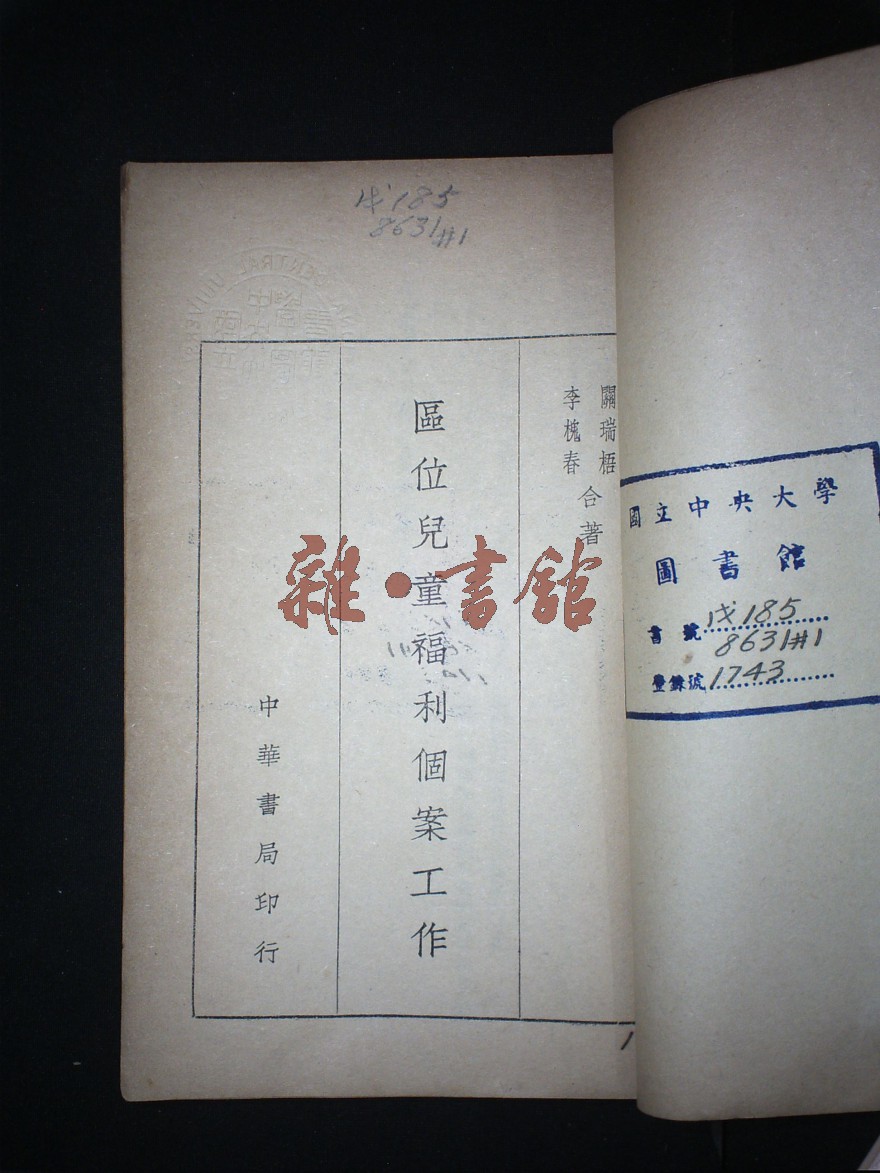 戊185
8631#1
關瑞梧
李槐春
合著
區位兒童福利個案工作
中華書局印行
雜·書館
國立中央大學
圖書館
書號 戊185
8631#1
登錄號 1743